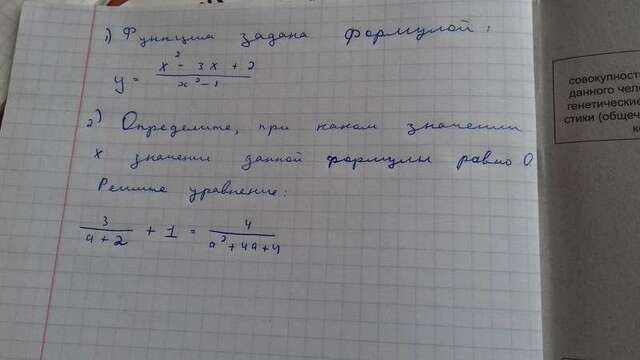 1) Функция задана формулой:
y = (x² - 3x + 2)/(x² - 1)
2) Определите, при каком значении
x значении данной формулы равно 0
Решите уравнение:
3/(a + 2) + 1 = 4/(a² + 4a + 4)
совокупность
данного чело
генетические
стики (общеч
к